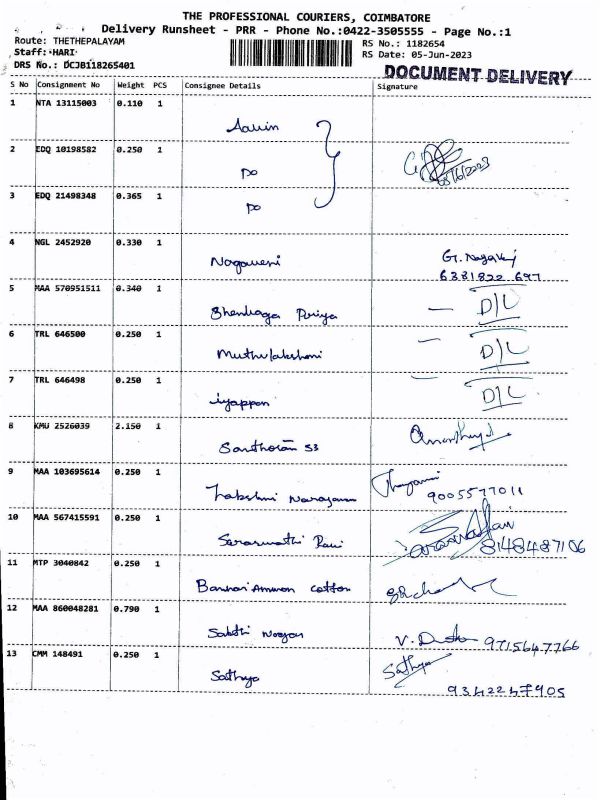 THE PROFESSIONAL COURIERS, COIMBATORE
Delivery Runsheet - PRR - Phone No.:0422-3505555 - Page No.:1
Route: THETHEPALAYAM
RS No.: 1182654
Staff: HARI
RS Date: 05-Jun-2023
DRS No.: DCJB118265401
DOCUMENT DELIVERY
S No Consignment No Weight PCS Consignee Details Signature
1 NTA 13115003 0.110 1
Aavin
2 EDQ 10198582 0.250 1
Do
05/6/2023
3 EDQ 21498348 0.365 1
Do
4 NGL 2452920 0.330 1
Nagaweni
6381822 697
5 MAA 570951511 0.340 1
Shenbaga Piriya
D/L
6 TRL 646500 0.250 1
Muthulakshmi
D/L
7 TRL 646498 0.250 1
iyappan
D/L
8 KMU 2526039 2.150 1
Santhosam S3
9 MAA 103695614 0.250 1
Lakshmi Narayanan
9005577011
10 MAA 567415591 0.250 1
Saraswathi Ravi
8148487106
11 MTP 3040842 0.250 1
Banhari Amman Cotton
12 MAA 860048281 0.790 1
Sakthi
V. 9715647766
13 CMM 148491 0.250 1
Sathya
Sathya
9342247905